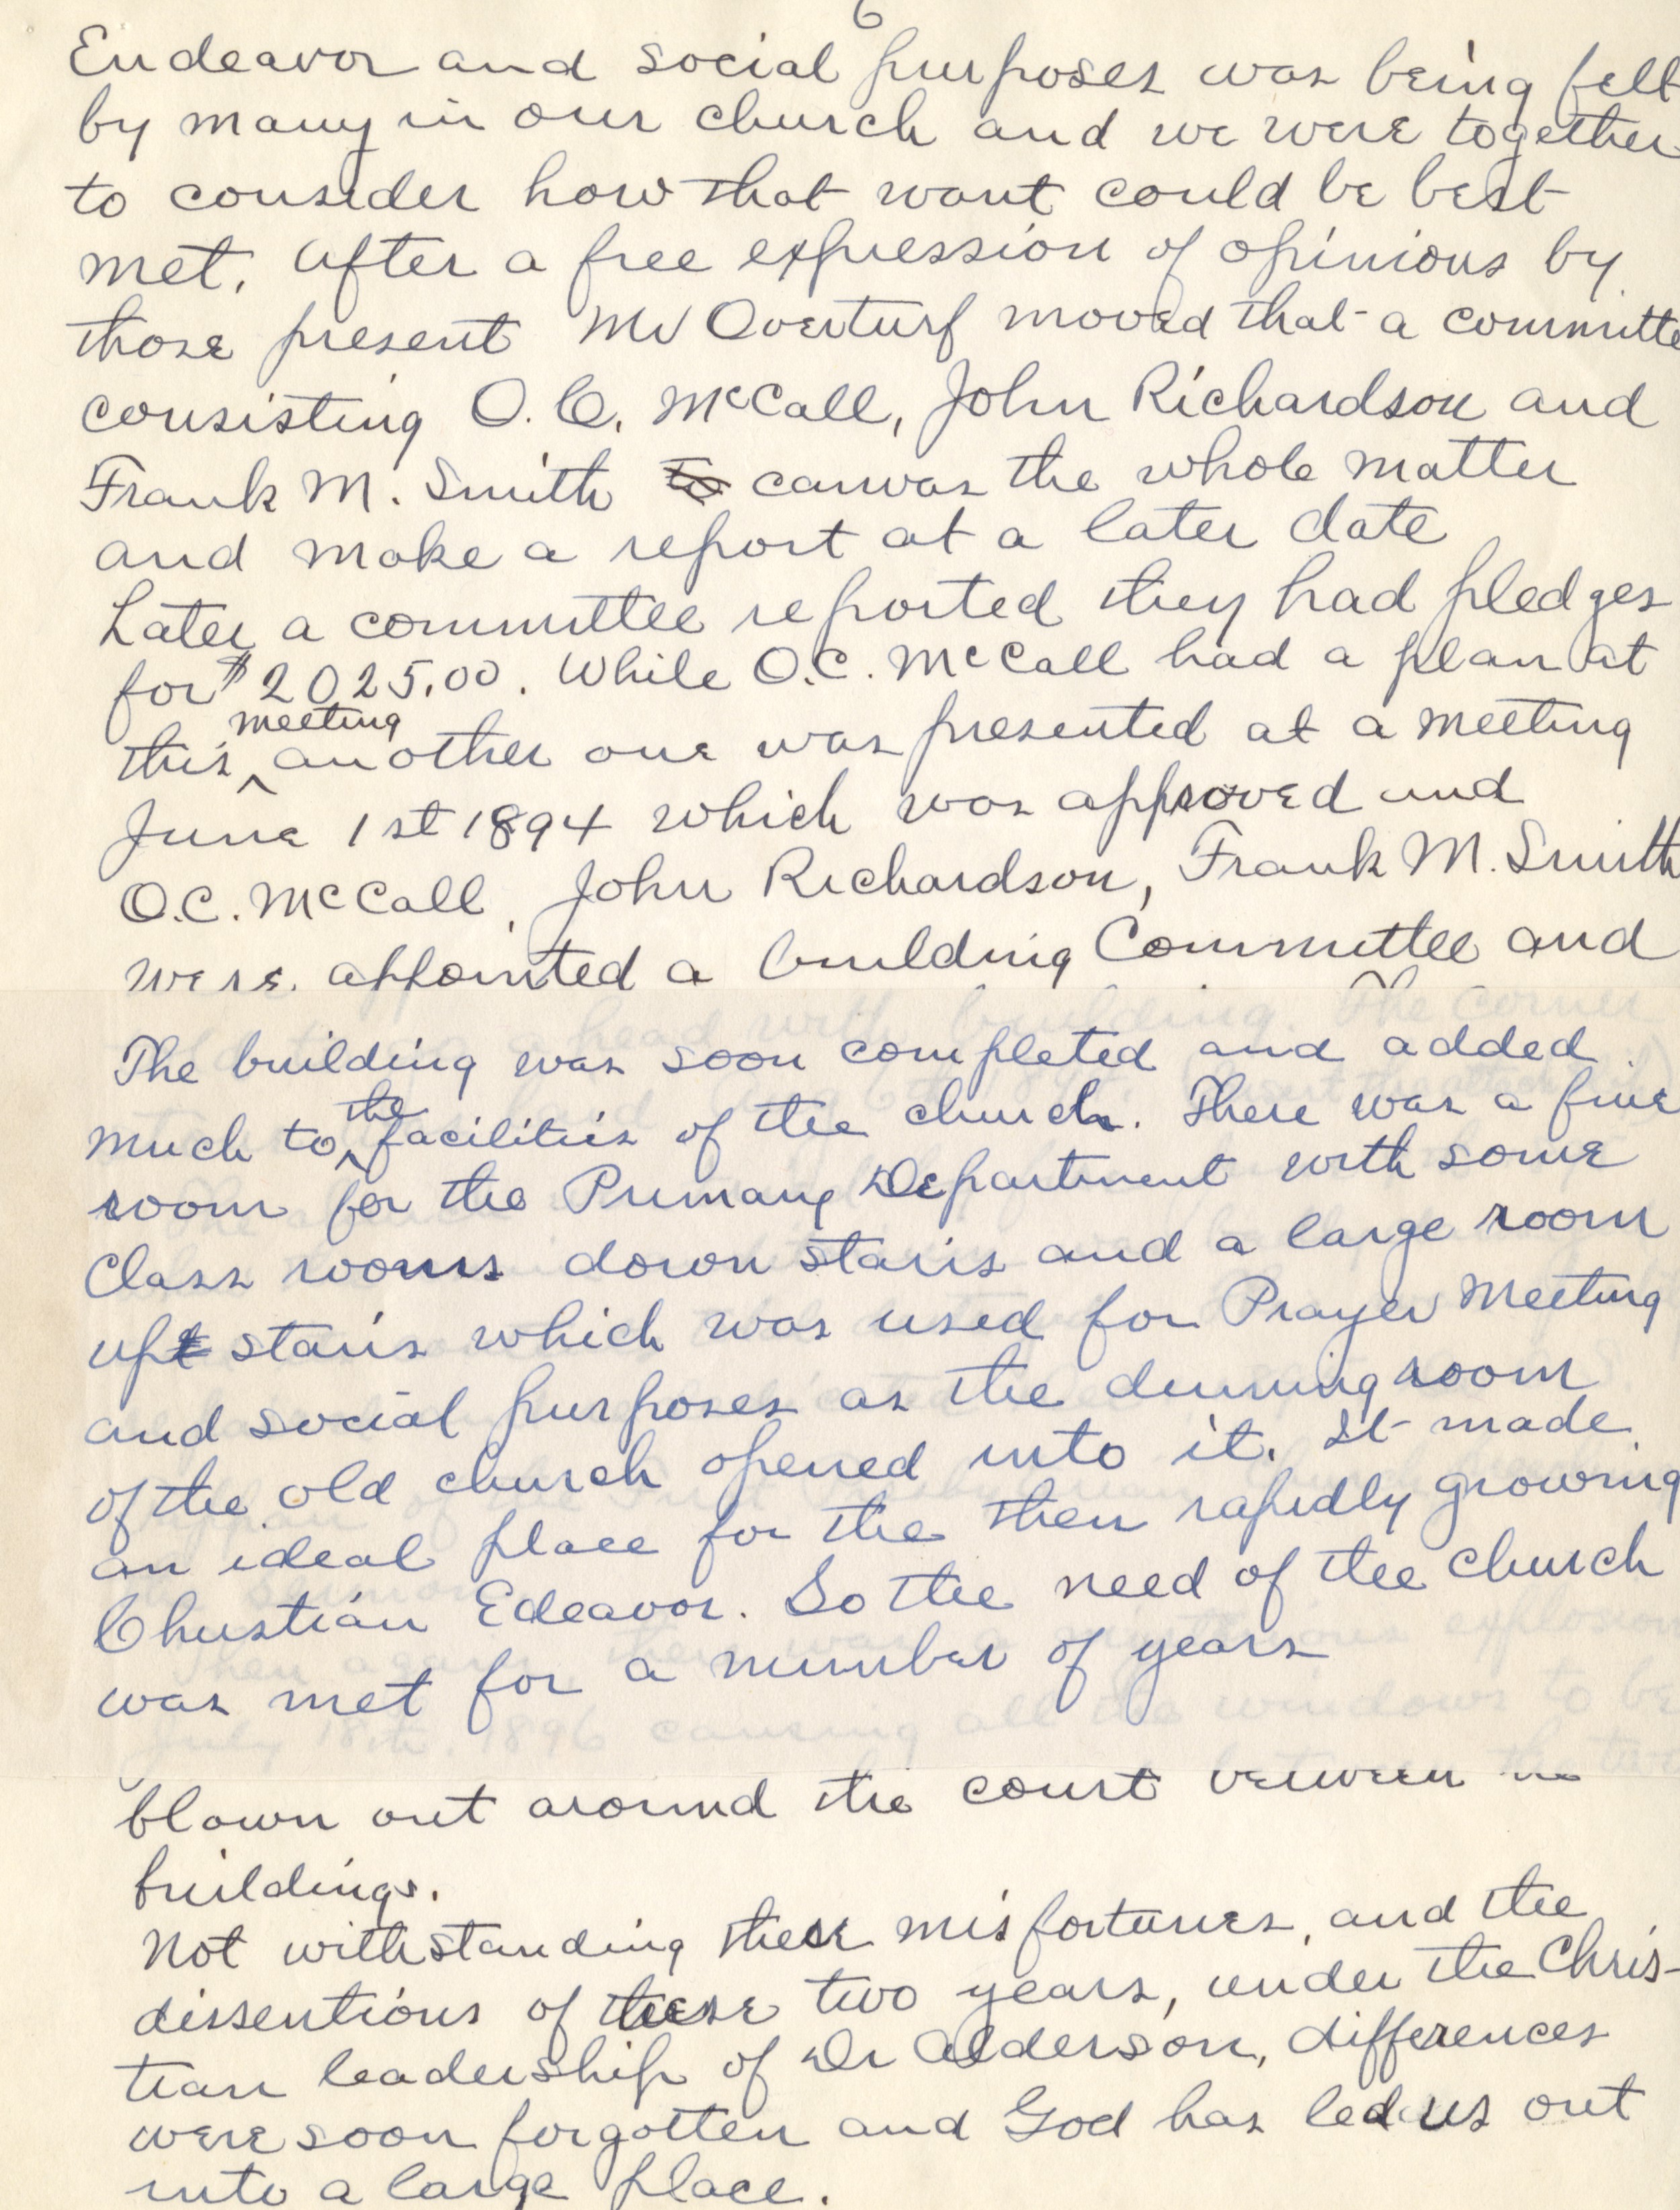 6
Endeavor and social purposes was being felt
by many in our church and we were together
to consider how that want could be best
met. After a free expression of opinions by
those present Mr Overturf moved that a committe
consisting O. C. McCall, John Richardson and
Frank M. Smith to canvas the whole matter
and make a report at a later date
Later a committee reported they had pledges
for $2025.00. While O.C. McCall had a plan at
this meeting another one was presented at a meeting
June 1st 1894 which was approved and
O.C. McCall, John Richardson, Frank M. Smith
were appointed a building Committee and
a head with building. The corner
The building was soon completed and added
much to the facilities of the church. There was a fine
room for the Primary Department with some
Class rooms down stairs and a large room
up stairs which was used for Prayer Meeting
and social purposes as the dinning room
of the old church opened into it. It made
an ideal place for the then rapidly growing
Christian Edeavor. So the need of the church
was met for a number of years
Then again explosion
July 18th, 1896 causing all the windows to be
blown out around the court between the
buildings.
Not withstanding these misfortunes, and the
dissentions of these two years, under the Chris-
tian leadership of Dr Alderson, differences
were soon forgotten and God has led us out
into a large place.